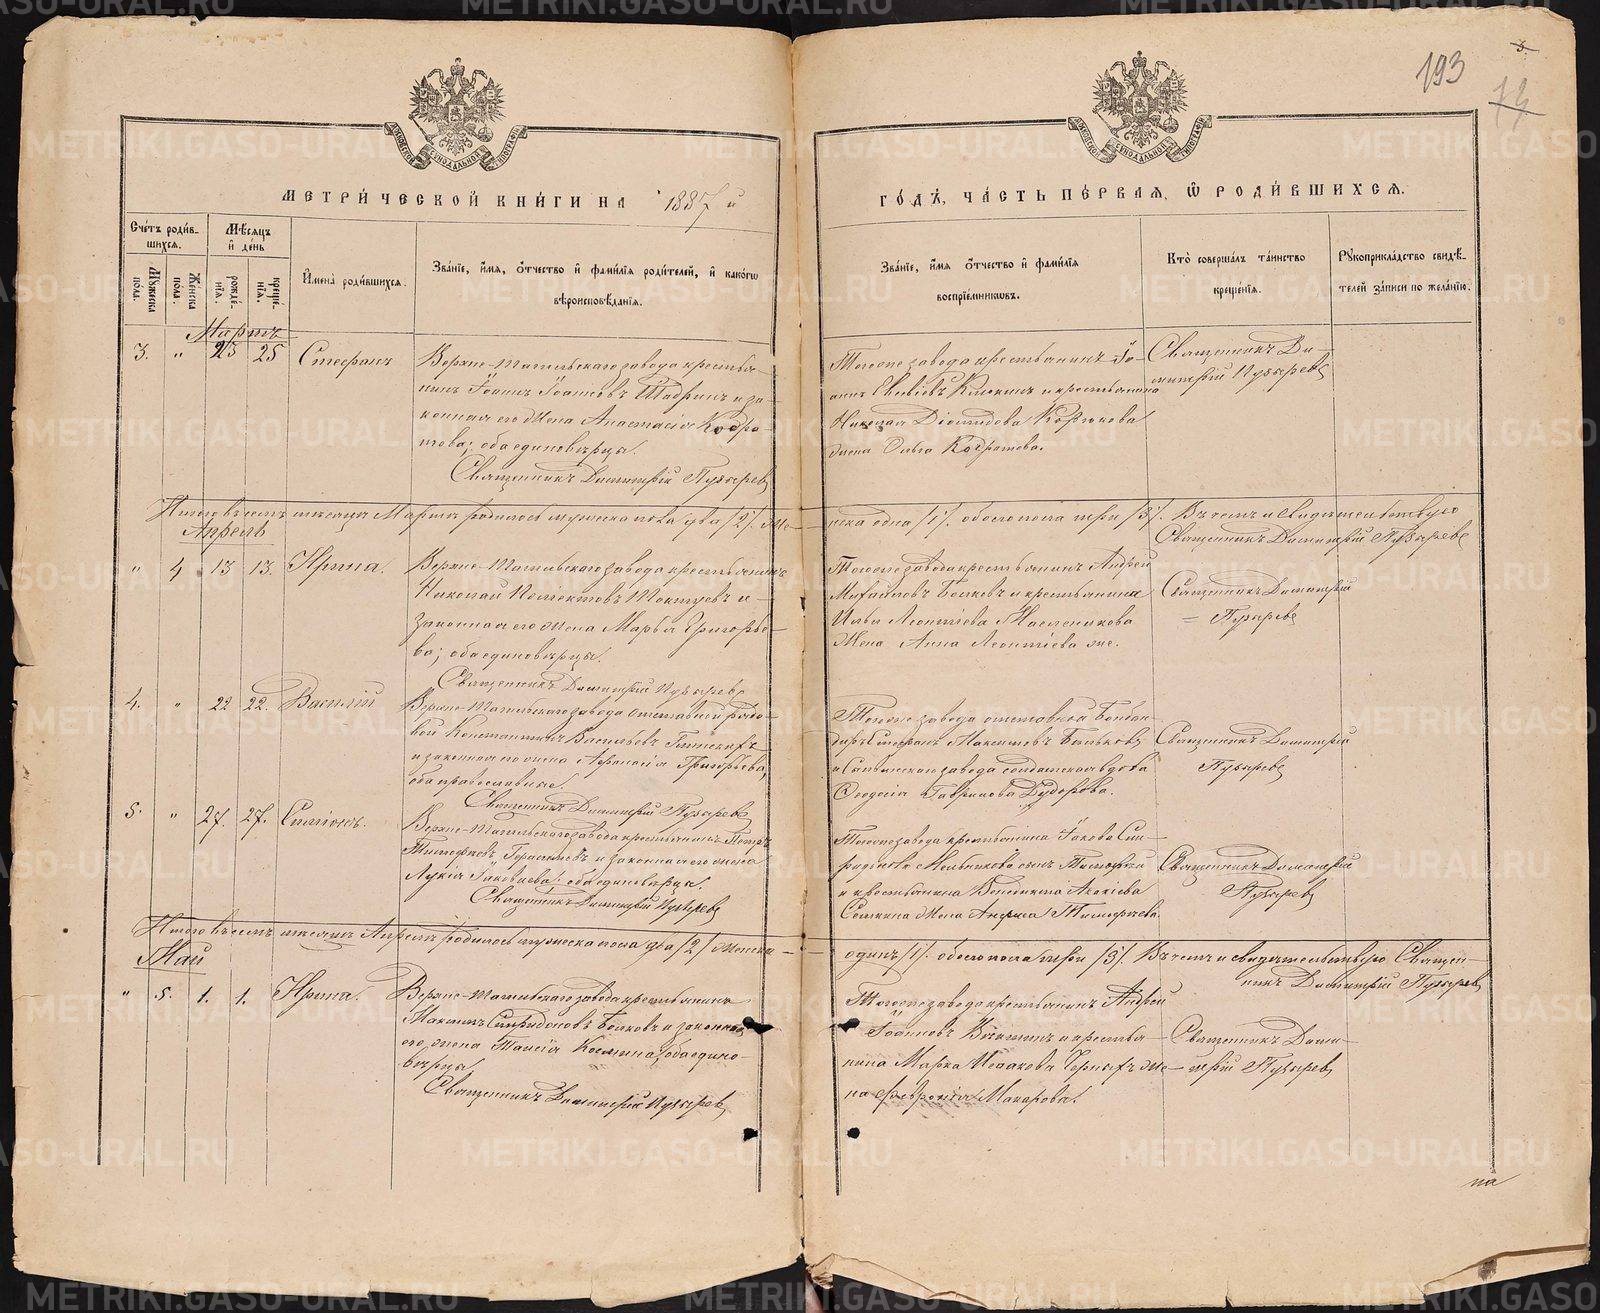 193
МЕТРИ́ЧЕСКОЙ КНИ́ГИ НА 1887 й
ГО́ДЪ, ЧА́СТЬ ПЕ́РВАЯ, Ѡ РОДИ́ВШИХСЯ.
Сче́тъ роди́в-
шихся.
Мѣ́сяцъ
и́ де́нь
Му́жеска
пола.
Же́нска
по́ла.
рожде́-
нія.
креще́-
нія.
И́мена̀ роди́вшихся.
Зва́ніе, и́мя, ѻ́тчество и́ фами́лія роди́телей, и́ како́гѡ
вѣроисповѣ́данія.
Зва́ніе, и́мя ѻ́тчество и́ фами́лія
воспріе́мниковъ.
Кто̀ соверша́лъ та́инство
креще́нія.
Рꙋкоприкла́дство свидѣ́-
телей за́писи по жела́нію.
Мартъ
3. " 23 25 Стефанъ
Верхне-Тагильскаго завода крестья-
нинъ Іоаннъ Іоанновъ Шадринъ и за-
конная его жена Анастасія Кодра-
това; оба единовѣрцы.
Священникъ Димитрій Пузыревъ
Тогоже завода крестьянинъ Іо-
аннъ
и крестьянина
Николая Діомидова Корюкова
жена Ольга Кодратова.
Священникъ Ди-
митрій Пузыревъ
Итого въ семъ мѣсяцѣ Мартѣ родилось мужеска пола два /2/. Же-
нска одна /1/. обоего пола три /3/. Въ чемъ и свидѣтельствую
Священникъ Димитрій Пузыревъ
Апрѣль
" 4 13 13. Ирина.
Верхне-Тагильскаго завода крестьянинъ
Николай
и
законная его жена Марья Григорье-
ва; оба единовѣрцы.
Священникъ Димитрій Пузыревъ
Тогоже завода крестьянинъ Андрей
Михайловъ Бѣлковъ и крестьянина
Ильи Леонтіева Масленикова
жена Анна Леонтіева же.
Священникъ Димитрій
Пузыревъ
4. " 22 22. Василій
Верхне-Тагильскаго завода отставной рядо-
вой Константинъ Васильевъ
и законная его жена Афанасія Григорьева,
оба православные.
Священникъ Димитрій Пузыревъ
Тогоже завода отставной Бомбан-
диръ Стефанъ Максимовъ Бѣльковъ
и завода солдатская вдова
Ѳеодосія Гаврилова
Священникъ Димитрій
Пузыревъ
5. " 27. 27. Симіонъ.
Верхне-Тагильскаго завода крестьянинъ Петръ
Тимофѣевъ Герасимовъ и законная его жена
Лукія Іаковлева; оба единовѣрцы.
Священникъ Димитрій Пузыревъ
Тогоже завода крестьянина Іакова Спи-
ридонова Мельникова сынъ Тимофей
и крестьянина Венедикта
жена Тимофѣева.
Священникъ Димитрій
Пузыревъ
Итого въ семъ мѣсяцѣ Апрѣлѣ родилось мужеска пола два /2/ женска
одинъ /1/. обоего пола три /3/. Въ чемъ и свидѣтельствую Священ-
никъ Димитрій Пузыревъ
Май
" 5. 1. 1. Ирина.
Верхне-Тагильскаго завода крестьянинъ
Максимъ Спиридоновъ Бѣлковъ и законная
его жена Таисія Космина; оба едино-
вѣрцы.
Священникъ Димитрій Пузыревъ
Тогоже завода крестьянинъ Андрей
Іоанновъ и крестья-
нина Марка Исаакова Черныхъ же-
на Февронія Макарова.
Священникъ Дими-
трій Пузыревъ
на
METRIKI.GASO-URAL.RU